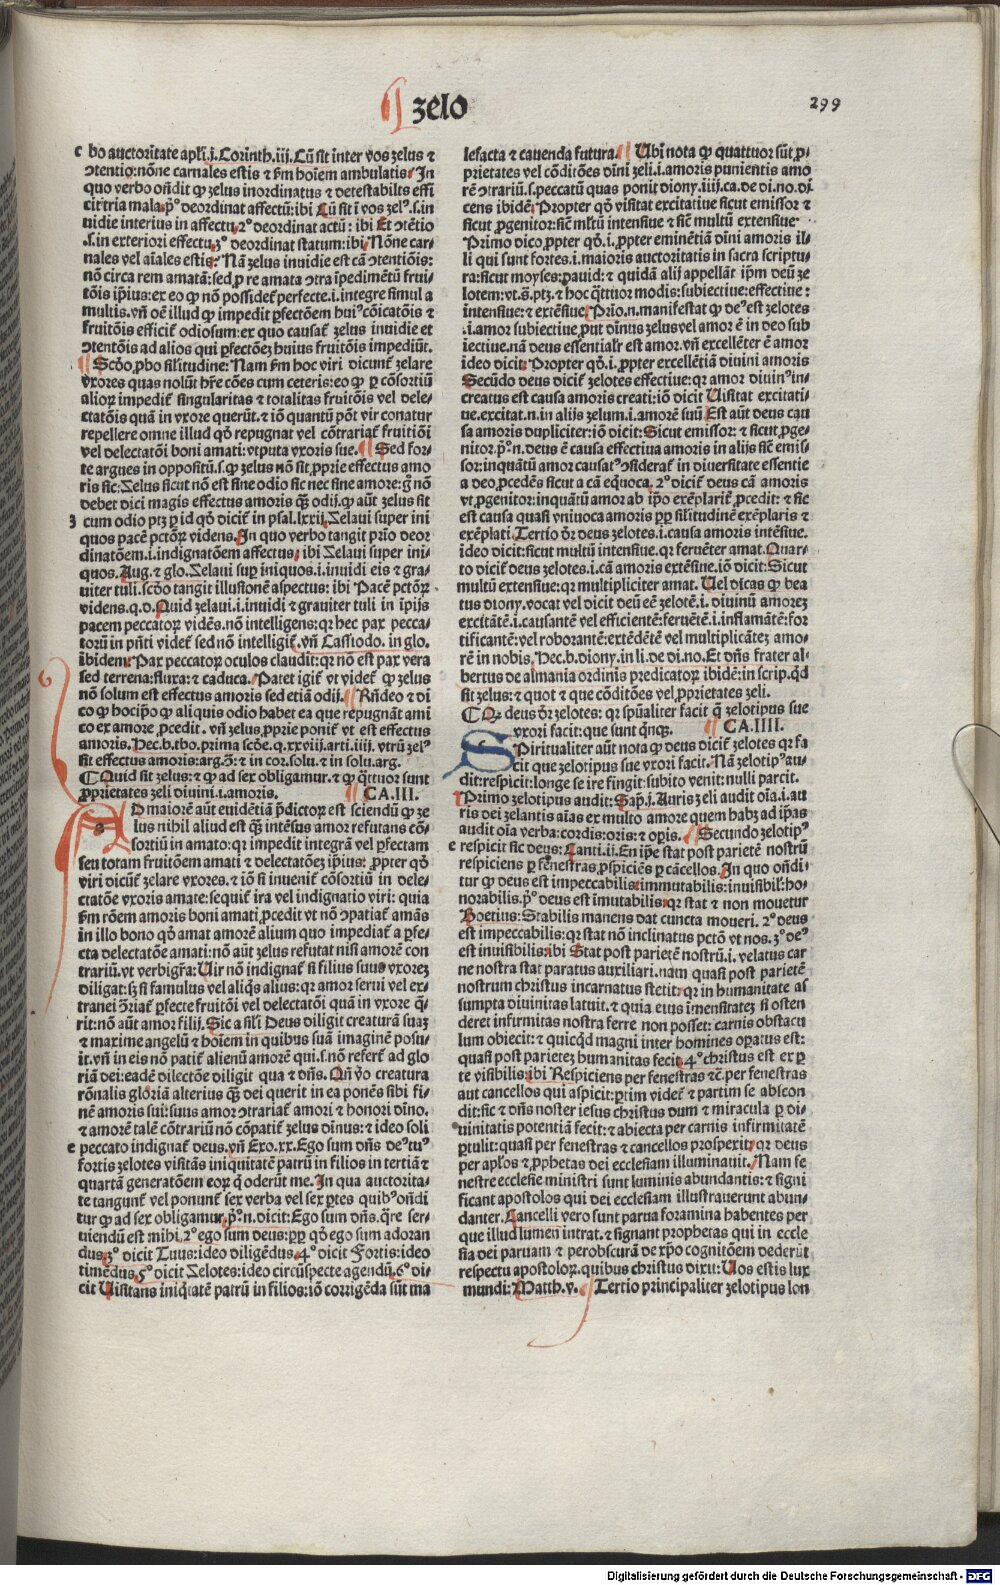 zelo
299
c bo auctoritate apl'i.j. Corinth.iij. Cū sit inter vos zelus ⁊
ↄtentio:nōne carnales estis ⁊ ẜm hoīem ambulatis. In
quo verbo oñdit ꝙ zelus inordinatus ⁊ detestabiles effi
cit tria mala.pº deordinat affectū:ibi Cū sit ī vos zelꝰ.s.in
uidie interius in affectu.2º deordinat actū : ibi Et ↄtētio
.s.in exteriori effectu.3º deordinat statum:ibi. Nōne car/
nales vel aīales estis: Nā zelus inuidie est cā ↄtentiōis:
nō circa rem amatā:sed ꝓ re amata ↄtra īpedimētū frui/
tōis ip̄ius:ex eo ꝙ nō possidet᷑ perfecte.i.integre simul a
multis.vñ oē illud ꝙ impedit ꝑfectōem huiꝰ cōicatōis ⁊
fruitōis efficit᷑ odiosum:ex quo causat᷑ zelus inuidie et
ↄtentōis ad alios qui ꝑfectōeꝫ huius fruitōis impediūt.
Scḋo ꝓbo silitudine: Nam ẜm hoc viri dicunt᷑ zelare
vxores quas nolūt hr̄e cōes cum ceteris:eo ꝙ ꝑ cōsortiū
alioꝝ impedit᷑ singularitas ⁊ totalitas fruitōis vel dele/
ctatōis quā in vxore querūt.⁊ iō quantū pōt vir conatur
repellere omne illud qḋ repugnat vel cōtrariat᷑ fruitiōi
vel delectatōi boni amati:vtputa vxoris sue. Sed for/
te argues in oppositū.s.ꝙ zelus nō sit ꝓprie effectus amo
ris sic:Zelus sicut nō est sine odio sic nec sine amore:gͦ nō
debet dici magis effectus amoris qꝫ odij.ꝙ aūt zelus sit
cum odio ptꝫ ꝑ id qḋ dicit᷑ in psal.lxxij.Zelaui super ini
quos pacē pctōꝝ videns. In quo verbo tangit prīo deor
dinatōem.i.indignatōem affectus. ibi Zelaui super ini/
quos. Aug.⁊ glo.Zelaui sup iniquos.i.inuidi eis ⁊ gra/
uiter tuli.scḋo tangit illusionē aspectus: ibi Pacē pctōꝝ
videns.q.d.Quid zelaui.i.inuidi ⁊ grauiter tuli in ip̄is
pacem peccatoꝝ vidēs.nō intelligens:qꝛ hec pax pecca/
torū in pñti videt᷑ sed nō intelligit᷑.vñ Cassiodo. in glo.
ibidem: Pax peccatoꝝ oculos claudit:qꝛ nō est pax vera
sed terrena:fluxa:⁊ caduca. Patet igit᷑ vt videt᷑ ꝙ zelus
nō solum est effectus amoris sed etiā odij. Rñdeo ⁊ di
co ꝙ hoc ip̄o ꝙ aliquis odio habet ea que repugnāt ami
co ex amore ꝓcedit . vñ zelus ꝓprie ponit᷑ vt est effectus
amoris.Hec.b.tho.prima scḋe.q.xxviij.arti.iiij.vtrū zelꝰ
sit effectus amoris:arg.2ͫ:⁊ in cor.solu.⁊ in solu.arg.
Quid sit zelus:⁊ ꝙ ad sex obligamur.⁊ ꝙ qttuor sunt
ꝓprietates zeli diuini.i.amoris. CA.III.
AD maiorē aūt euidētiā p̄dictoꝝ est sciendū ꝙ ze
lus nihil aliud est qꝫ intēsus amor refutans cō/
sortiū in amato:qꝛ impedit integrā vel ꝑfectam
seu totam fruitōem amati ⁊ delectatōeꝫ ip̄ius: ꝓpter qḋ
viri dicūt᷑ zelare vxores.⁊ iō si inuenit᷑ cōsortiū in dele/
ctatōe vxoris amate:sequit᷑ ira vel indignatio viri: quia
ẜm rōem amoris boni amati ꝓcedit vt nō ↄpatiat᷑ amās
in illo bono qḋ amat amorē alium quo impediat᷑ a ꝑfe/
cta delectatōe amati:nō aūt zelus refutat nisi amorē con
trariū.vt verbigr̄a: Uir nō indignat᷑ si filius suus vxoreꝫ
diligat:sꝫ si famulus vel aliqs alius:qꝛ amor serui vel ex/
tranei ↄ̄riat᷑ ꝑfecte fruitōi vel delectatōi quā in vxore q̄/
rit:nō aūt amor filij. Sic a sili Deus diligit creaturā suaꝫ
⁊ maxime angelū ⁊ hoīem in quibus suā imaginē posu/
it.vñ in eis nō patit᷑ alienū amorē qui.s.nō refert᷑ ad glo
riā dei:eadē dilectōe diligit qua ⁊ dñs. Qñ v̄o creatura
rōnalis gloriam alterius qꝫ dei querit in ea ponēs sibi fi/
nē amoris sui:suus amor ↄtrariat᷑ amori ⁊ honori dīno.
⁊ amorē talē cōtrariū nō cōpatit᷑ zelus dīnus:⁊ ideo soli
e peccato indignat᷑ deus.vñ Exo.xx.Ego sum dñs deꝰtuꝰ
fortis zelotes visitās iniquitatē patrū in filios in tertiā ⁊
quartā generatōem eoꝝ q̄ oderūt me. In qua auctorita/
te tangunt᷑ vel ponunt᷑ sex verba vel sex ꝑtes quibꝰ oñdi
tur ꝙ ad sex obligamur.pº.n.dicit:Ego sum dñs.q̄re ser/
uiendū est mihi.2º ego sum deus:ꝓꝑ qḋ ego sum adoran
dus.3º dicit Tuus:ideo diligēdus.4º dicit Fortis:ideo
timēdus.5º dicit Zelotes:ideo circūspecte agendū.6º di/
cit Uisitans iniqtatē patrū in filios:iō corrigēda sūt ma
lefacta ⁊ cauenda futura. Ubi nota ꝙ quattuor sūt ꝓ/
prietates vel cōditōes dīni zeli.i.amoris punientis amo
rē ↄtrariū.s.peccatū quas ponit diony.iiij.ca.de di.no.di
cens ibidē: Propter qḋ visitat excitatiue sicut emissor ⁊
sicut ꝓgenitor:sic̄ mltū intensiue ⁊ sic̄ multū extensiue
Primo dico ꝓpter qḋ.i.ꝓpter eminētiā dīni amoris il/
li qui sunt fortes.i.maioris auctoritatis in sacra scriptu/
ra:sicut moyses:dauid:⁊ quidā alij appellāt ip̄m deū ze
lotem:vt.s.ptꝫ.⁊ hoc qttuor modis:subiectiue:effectiue:
intensiue:⁊ extēsiue. Prīo.n.manifestat ꝙ deꝰ est zelotes
.i.amor subiectiue ꝓut dīnus zelus vel amor ē in deo sub
iectiue.nā deus essentialr̄ est amor.vñ excellēter ē amor
ideo dicit. Propter qḋ.i.ꝓpter excellētiā diuini amoris
Secūdo deus dicit᷑ zelotes effectiue:qꝛ amor diuinꝰ in/
creatus est causa amoris creati:iō dicit Uisitat excitati/
ue.excitat.n.in alijs zelum.i.amorē suū. Est aūt deus cau
sa amoris dupliciter:iō dicit: Sicut emissor:⁊ sicut ꝓge/
nitor.pº.n.deus ē causa effectiua amoris in alijs sic̄ emis/
sor:inquātū amor causatꝰ ↄsiderat᷑ in diuersitate essentie
a deo ꝓcedēs sicut a cā equoca.2º dicit᷑ deus cā amoris
vt ꝓgenitor:inquātū amor ab ip̄o exēplarit᷑ ꝓcedit:⁊ sic
est causa quasi vniuoca amoris ꝓꝑ silitudinē exēplaris ⁊
exēplati. Tertio dr̄ deus zelotes.i.causa amoris intēsiue.
ideo dicit:sicut multū intensiue.qꝛ feruēter amat. Quar/
to dicit᷑ deus zelotes.i.cā amoris extēsiue.iō dicit: Sicut
multū extensiue:qꝛ multipliciter amat. Uel dicas ꝙ bea
tus diony.vocat vel dicit deū eē zelotē.i. diuinū amoreꝫ
excitātē.i.causantē vel efficientē:feruētē.i.inflamātē:for
tificantē:vel roborantē:extēdētē vel multiplicāteꝫ amo/
rē in nobis.Hec.b.diony.in li.de di.no.Et dñs frater al/
bertus de almania ordinis predicatoꝝ ibidē:in scrip.qd
sit zelus:⁊ quot ⁊ que cōditōes vel ꝓprietates zeli.
Qꝫ deus dr̄ zelotes: qꝛ spūaliter facit q̄ zelotipus sue
vxori facit:que sunt qnqꝫ. CA.IIII.
SPiritualiter aūt nota ꝙ deus dicit᷑ zelotes qꝛ fa
cit que zelotipus sue vxori facit. Nā zelotipꝰ au/
dit:respicit:longe se ire fingit:subito venit:nulli parcit.
Primo zelotipus audit: Sap̄.j. Auris zeli audit oīa.i.au
ris dei zelantis aīas ex multo amore quem habꝫ ad ip̄as
audit oīa verba:cordis:oris:⁊ oꝑis. Secundo zelotipꝰ
e respicit sic deus: Canti.ij.En ip̄e stat post parietē nostrū
respiciens ꝑ fenestras ꝓspiciēs ꝑ cācellos. In quo oñdi/
tur ꝙ deus est impeccabilis:immutabilis:inuisibil':ho/
norabilis.pº deus est īmutabilis:qꝛ stat ⁊ non mouetur
Boetius:Stabilis manens dat cuncta moueri. 2º deus
est impeccabilis:qꝛ stat nō inclinatus pctō vt nos.3º deꝰ
est inuisibilis:ibi Stat post parietē nostrū.i. velatus car
ne nostra stat paratus auxiliari.nam quasi post parietē
nostrum christus incarnatus stetit:qꝛ in humanitate as
sumpta diuinitas latuit.⁊ quia eius īmensitateꝫ si osten
deret infirmitas nostra ferre non posset: carnis obstacu
lum obiecit:⁊ quicqd magni inter homines oꝑatus est:
quasi post parieteꝫ humanitas fecit.4º christus est ex ꝑ
te visibilis:ibi Respiciens per fenestras ⁊c̄.per fenestras
aut cancellos qui aspicit:ꝑtim videt᷑ ⁊ partim se abscon
dit:sic ⁊ dñs noster iesus christus dum ⁊ miracula ꝑ di/
uinitatis potentiā fecit:⁊ abiecta per carnis infirmitatē
ꝑtulit:quasi per fenestras ⁊ cancellos prospexit:qꝛ deus
per apl'os ⁊ ꝓphetas dei ecclesiam illuminauit. Nam fe
nestre ecclesie ministri sunt luminis abundantis:⁊ signi
ficant apostolos qui dei ecclesiam illustrauerunt abun/
danter. Cancelli vero sunt parua foramina habentes per
que illud lumen intrat.⁊ signant prophetas qui in eccle
sia dei paruam ⁊ perobscurā de xp̄o cognitōem dederūt
respectu apostoloꝝ.quibus christus dixit: Uos estis lux
mundi: Matth.v. Tertio principaliter zelotipus lon
Digitalisierung gefördert durch die Deutsche Forschungsgemeinschaft - DFG